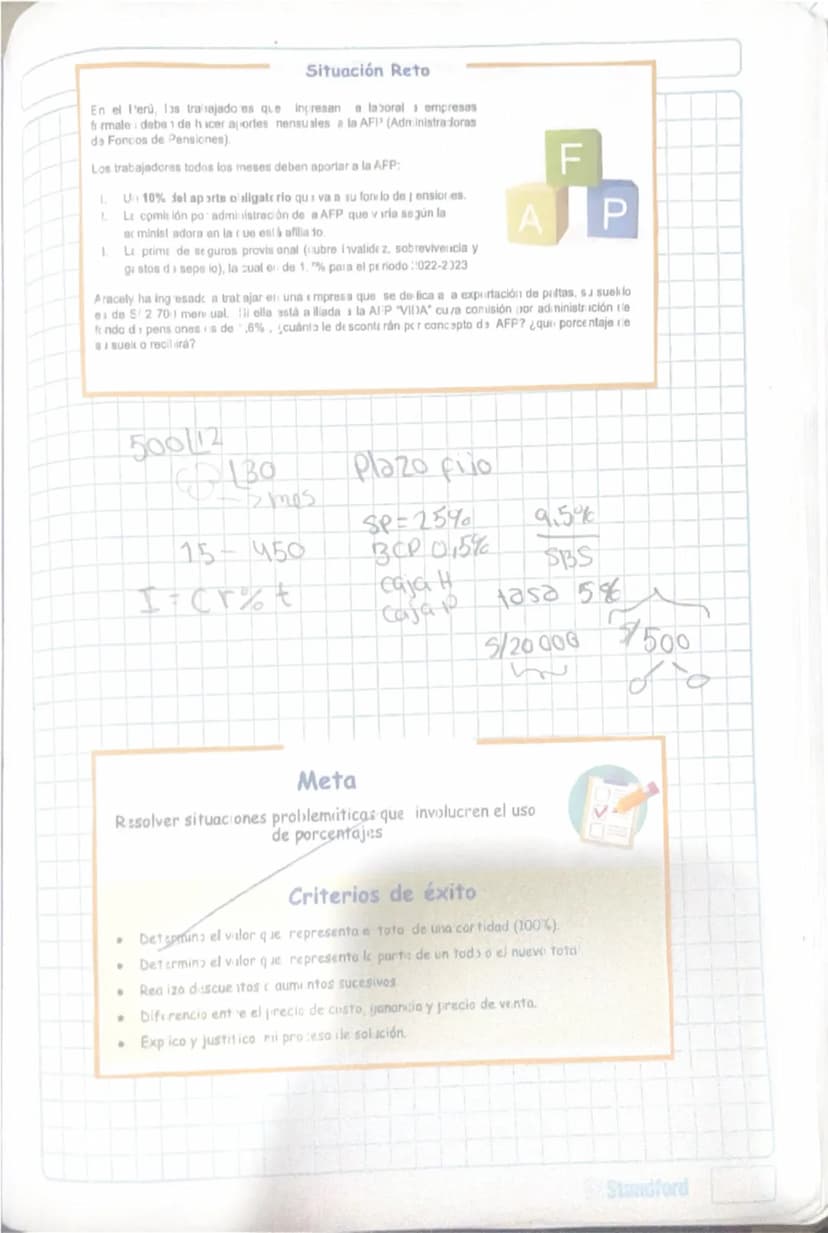 Situación Reto
En el Perú, los trabajadores que ingresan a laboral a empresas
formales deben de hacer aportes mensuales a la AFP (Administradoras
de Fondos de Pensiones).
Los trabajadores todos los meses deben aportar a la AFP:
Un 10% del aporte obligatorio que va a su fondo de pensiones.
La comisión por administración de la AFP que varía según la
administradora en la que está afiliato.
La prima de seguros provisional (cubre invalidez, sobrevivencia y
gastos de sepelio), la cual en de % para el periodo 2022-2023
Aracely ha ingresado a trabajar en una empresa que se dedica a la exportación de paltas, su sueldo
es de S/ 2 700 mensual. Si ella está afiliada a la AFP "VIDA" cuya comisión por administración de
fondo de pensiones es de ,6% , ¿cuánto le descontarán por concepto de AFP? ¿qué porcentaje de
su sueldo recibirá?
F
A P
500 12
30
mes
Plazo fijo
SP = 25%
9,5%
15 - 450
BCP 0,5%
SBS
I = C r% t
caja H
tasa 5%
caja P
S/20 000
S/500
Meta
Resolver situaciones problemáticas que involucren el uso
de porcentajes
Criterios de éxito
• Determino el valor que representa el total de una cantidad (100%).
• Determino el valor que representa la parte de un todo o el nuevo total
• Realizo descuentos o aumentos sucesivos
• Diferencio entre el precio de costo, ganancia y precio de venta.
• Explico y justifico mi proceso de solución.
Standford